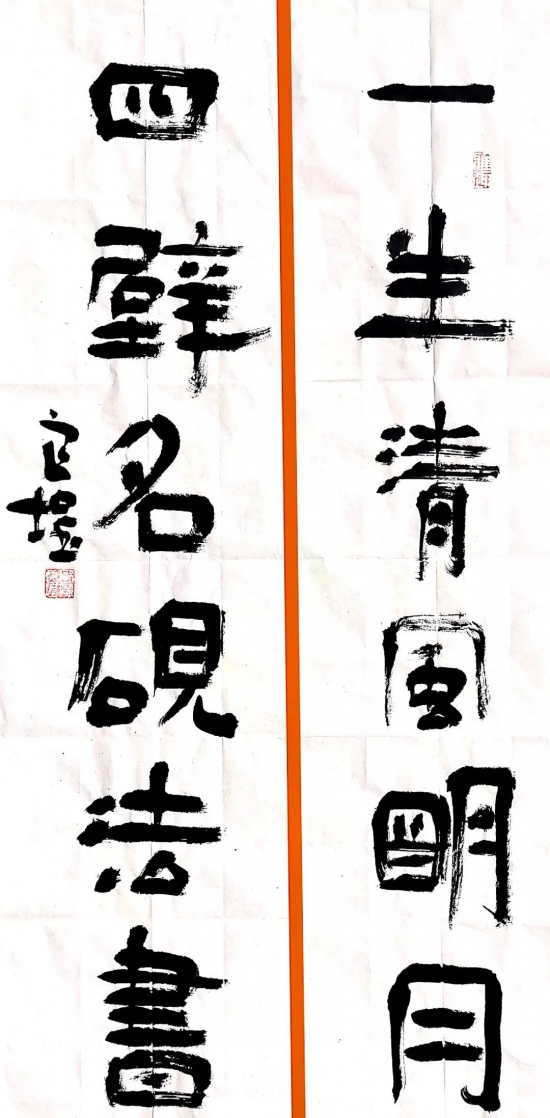 一生清風明月
四壁名硯法書
官墥